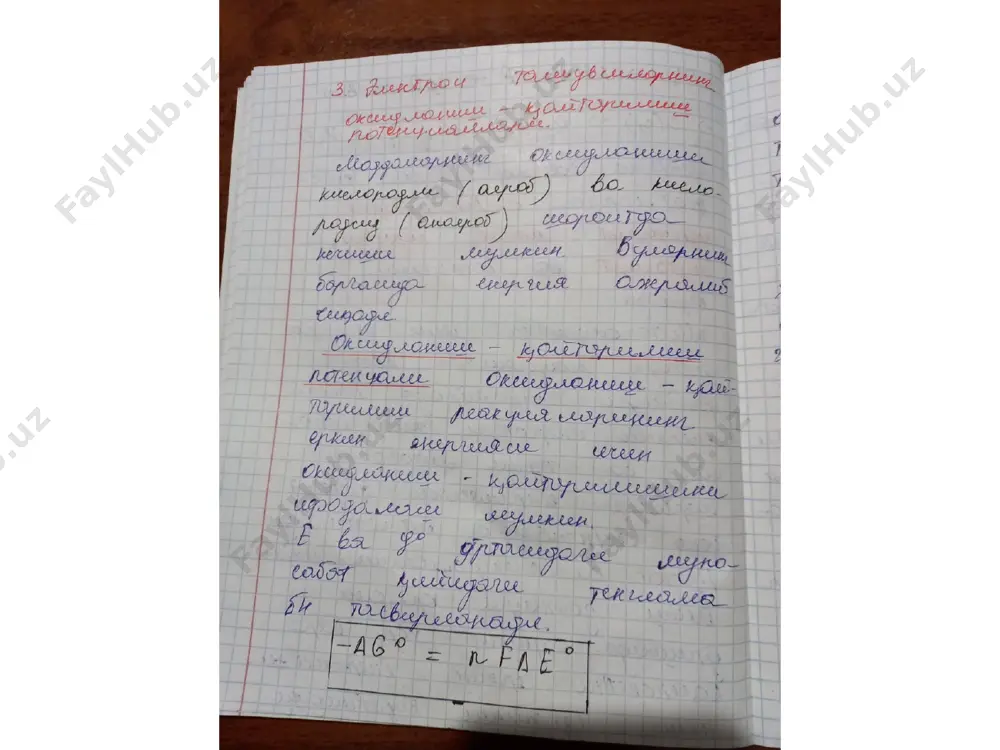 3. Электрон ташувчиларнинг
оксидланиш - қайтарилиш
потенциаллари.
Моддаларнинг оксидланиши
кислородли (аероб) ва кисло-
родсиз (анаероб) шароитда
кечиши мумкин Буларнинг
барчасида енергия ажралиб
чиқади.
Оксидланиш - қайтарилиш
потенциали оксидланиш - қай-
тарилиш реакцияларининг
еркин енергияси ичин
оксидланиш - қайтарилишини
ифодалаш мумкин.
Е ва до ўртасидаги муно-
сабат қуйидаги тенглама
бн тасвирланади.
-ΔG° = nFΔE°
FaylHub.uz
FaylHub.uz
FaylHub.uz
FaylHub.uz
FaylHub.uz
FaylHub.uz